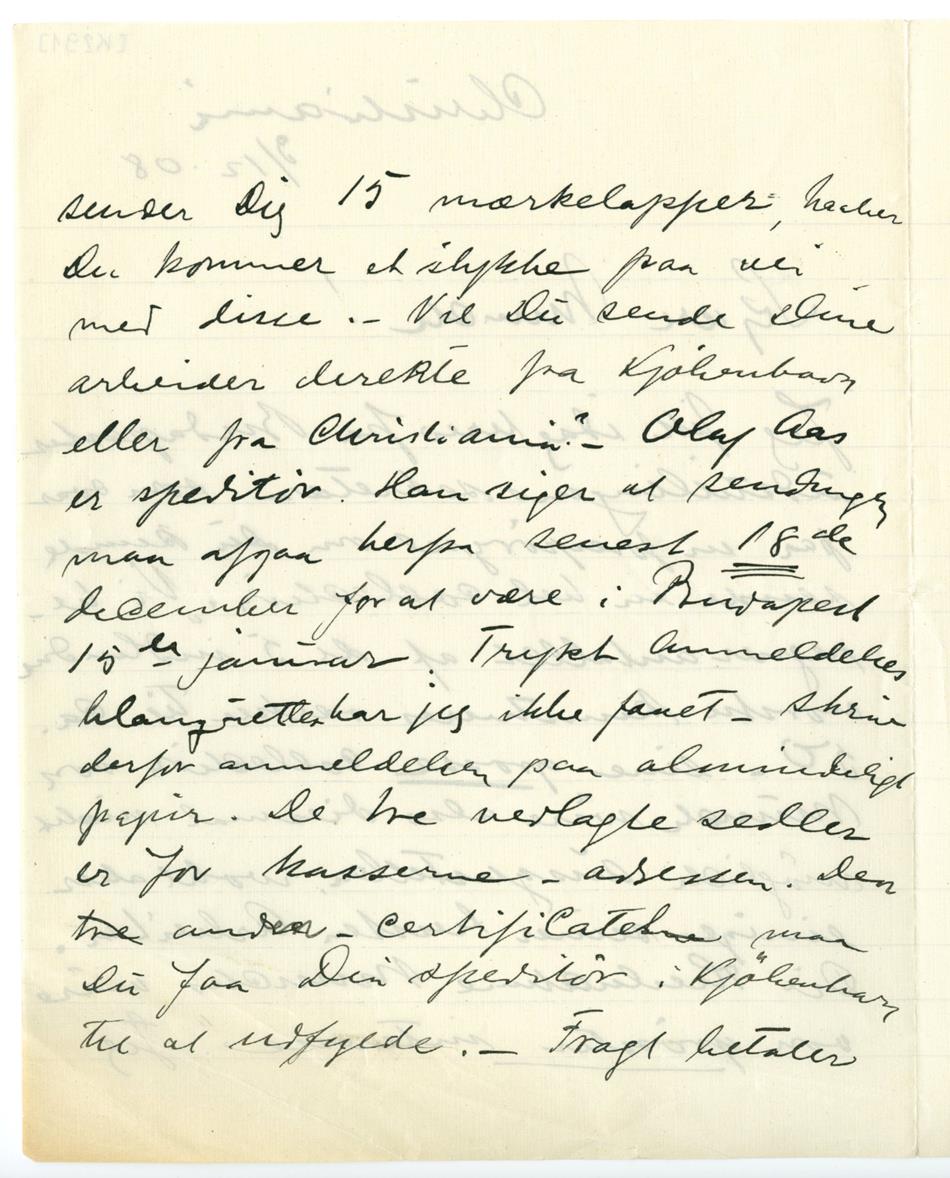 sender Dig 15 mærkelapper, haaber
Du kommer et stykke paa vei
med disse. – Vil Du sende Dine
arbeider direkte fra Kjöbenhavn
eller fra Christiania? – Olaf Aas
er speditör. Han siger at sendingen
maa afgaa herfra senest 18de
december for at være i Budapest
15de januar. Trykt Anmeldelses
har jeg ikke faaet – Skriv
derfor anmeldelsen paa almindeligt
papir. De tre vedlagte sedler
er for kasserne – adressen. Den
tre anden – certificaterne maa
Du faa Din speditör i Kjöbenhavn
til at udfylde. – Fragt betaler